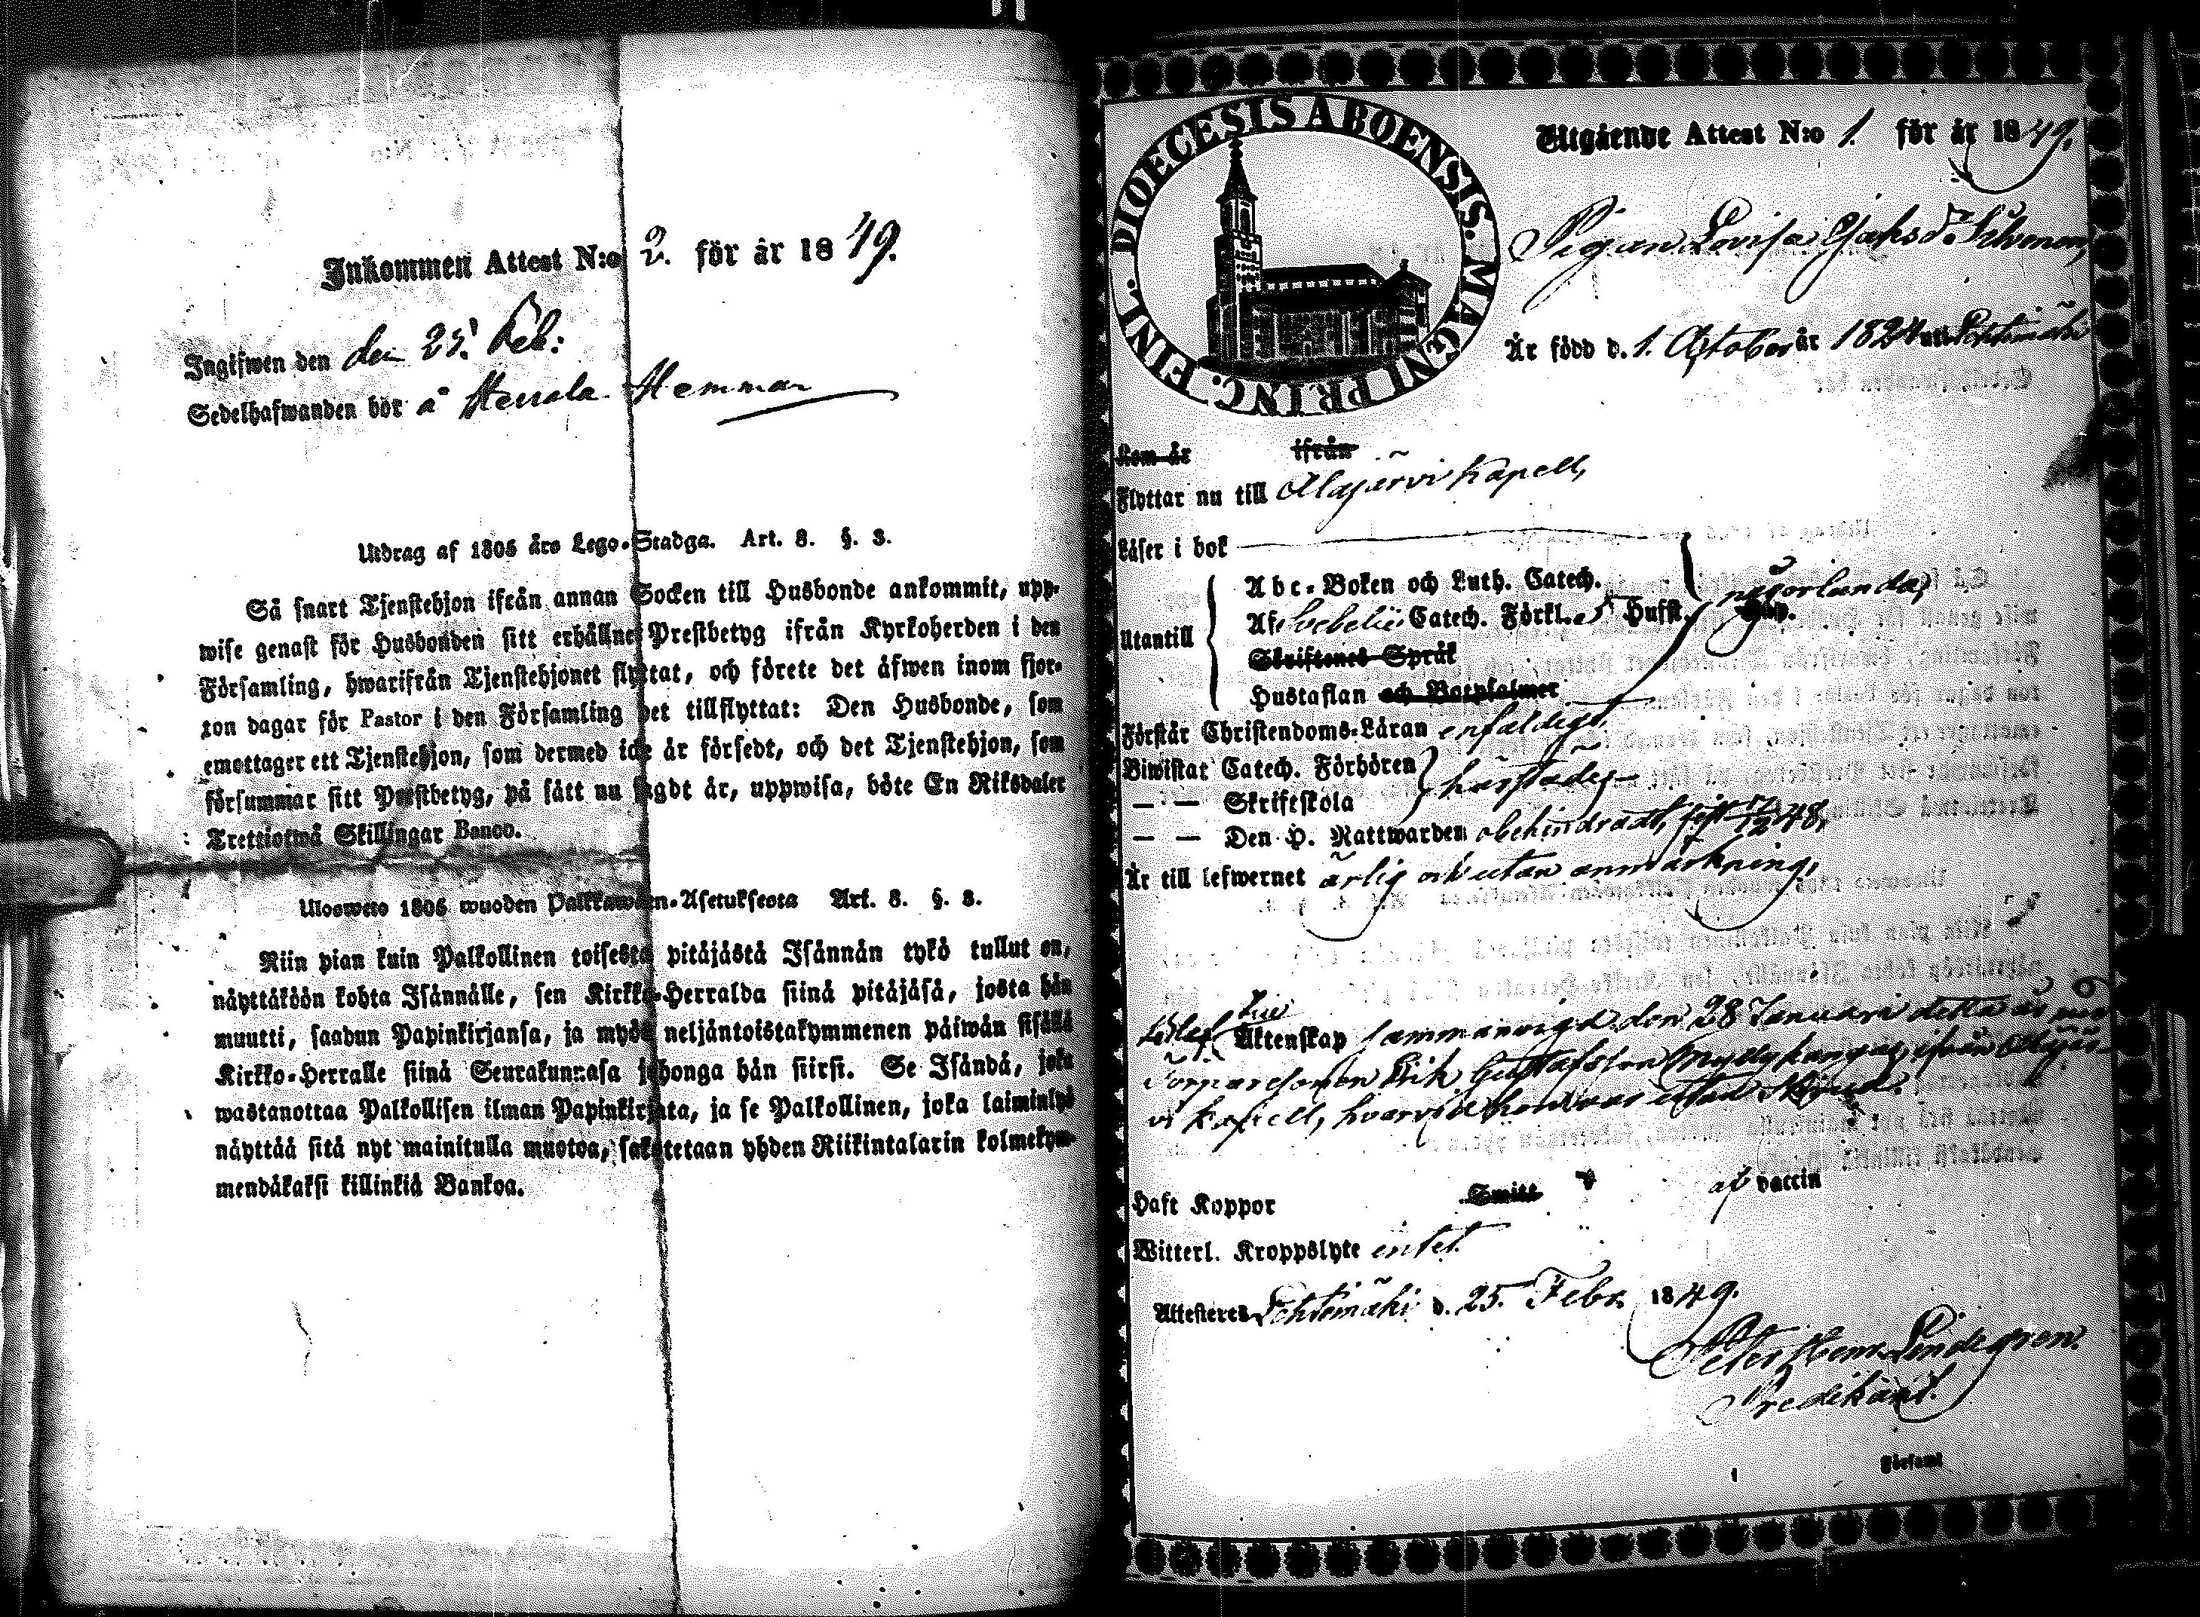 Inkommen Attest N:o 2. för år 1849.
Ingifwen den den 25 Feb:
Sedelhafwanden bor å Herrala Hemman
Utdrag af 1805 års Lego-Stadga. Art. 8. §. 3.
Så snart Tjenstehjon ifrån annan Socken till Husbonde ankommit, upp-
wise genast för Husbonden sitt erhållne Prestbetyg ifrån Kyrkoherden i den
Församling, hwarifrån Tjenstehjonet flyttat, och förete det äfwen inom fjor-
ton dagar för Pastor i den Församling det tillflyttat: Den Husbonde, som
emottager ett Tjenstehjon, som dermed icke är försedt, och det Tjenstehjon, som
försummar sitt Prestbetyg, på sätt nu sagdt är, uppwisa, böte En Riksdaler
Trettiotwå Skillingar Banco.
Ulosweto 1805 wuoden Palkkawäen-Asetuksesta Art. 8. §. 3.
Niin pian kuin Palkollinen toisesta pitäjästä Isännän tykö tullut on,
näyttäköön kohta Isännälle, sen Kirkko-Herralda siinä pitäjäsä, josta hän
muutti, saadun Papinkirjansa, ja myös neljäntoistakymmenen päiwän sisällä
Kirkko-Herralle siinä Seurakunnasa johonga hän siirsi. Se Isändä, joka
wastanottaa Palkollisen ilman Papinkirjata, ja se Palkollinen, joka laiminlyö
näyttää sitä nyt mainitulla muotoa, sakotetaan yhden Riikintalarin kolmekym-
mendäkaksi killinkiä Bankoa.
DIOECESIS ABOENSIS. MAGNI PRINC. FINL.
Utgående Attest N:o 1. för år 1849.
Pigan Lovisa Jaksd.
Är född d. 1. October år 1824 uti Lehtimäki
Kom år ifrån
Flyttar nu till Alajärvi Kapell,
Läser i bok
Abc-Boken och Luth. Catech. någorlunda,
Utantill Af Svebelii Catech. Förkl. Husfl.
Skriftenes Språk
Hustaflan och Botpsalmer
Förstår Christendoms-Läran enfaldigt.
Biwistat Catech. Förhören
— — Skriftskola
— — Den H. Nattwarden obehindradt, sist 17/12 48,
Är till lefwernet ärlig och utan anmärkning,
Äktenskap sammanvigd den 28 Januari detta år med
Torparesonen Erik Gustafsson Myllykangas ifrån Alajär-
vi kapell,
Haft Koppor Smitt af vaccin
Witterl. Kroppslyte intet.
Attesteres Lehtimäki d. 25. Febr. 1849.
Peter Henr. Lindegren.
Predikant.
Församl